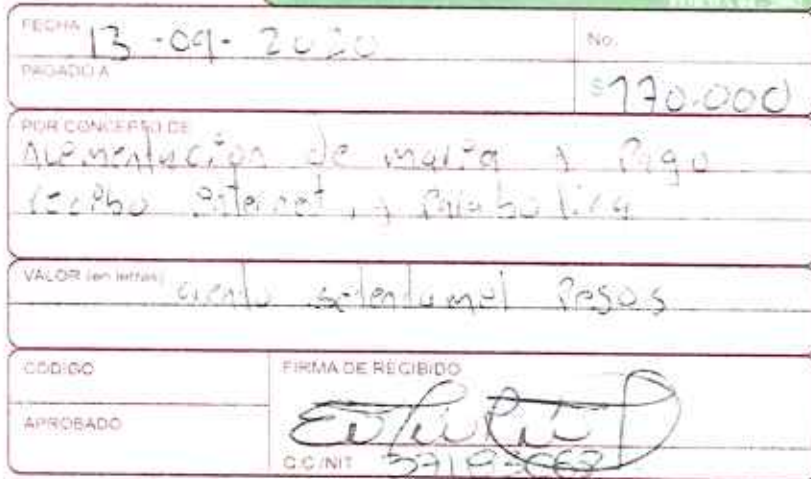 FECHA 13-09-2020
No.
PAGADO A
$ 170.000
POR CONCEPTO DE
Alementación de maria y Pago
recibo internet, y Parabolica
VALOR (en letras) ciento setenta mil Pesos
CODIGO
FIRMA DE RECIBIDO
APROBADO
C.C./NIT